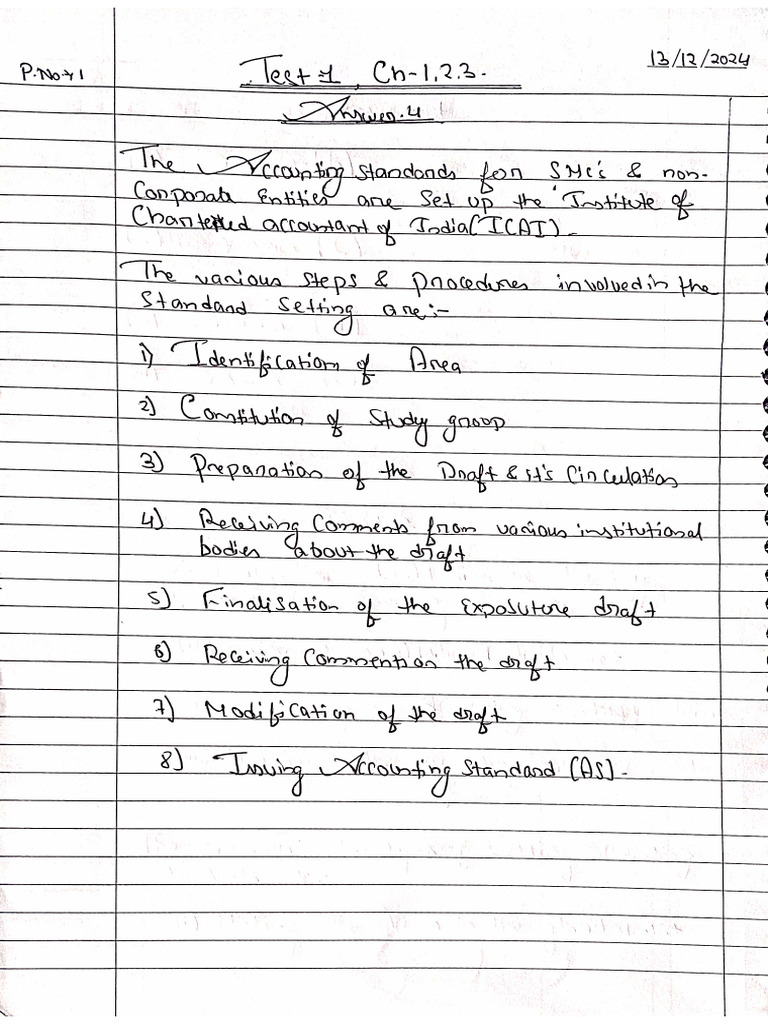 P.No→1
Test 1, Ch-1,2,3.
13/12/2024
Answer.4
The Accounting Standards for SMC's & non-
Corporate Entities are Set up the Institute of
Chartered accountant of India (ICAI).
The various steps & procedures involved in the
Standard Setting are:-
1) Identification of Area
2) Constitution of Study group
3) Preparation of the Draft & it's Circulation
4) Receiving Comments from various institutional
bodies about the draft
5) Finalisation of the Exposuture draft
6) Receiving Commention the draft
7) Modification of the draft
8) Issuing Accounting Standard (AS).